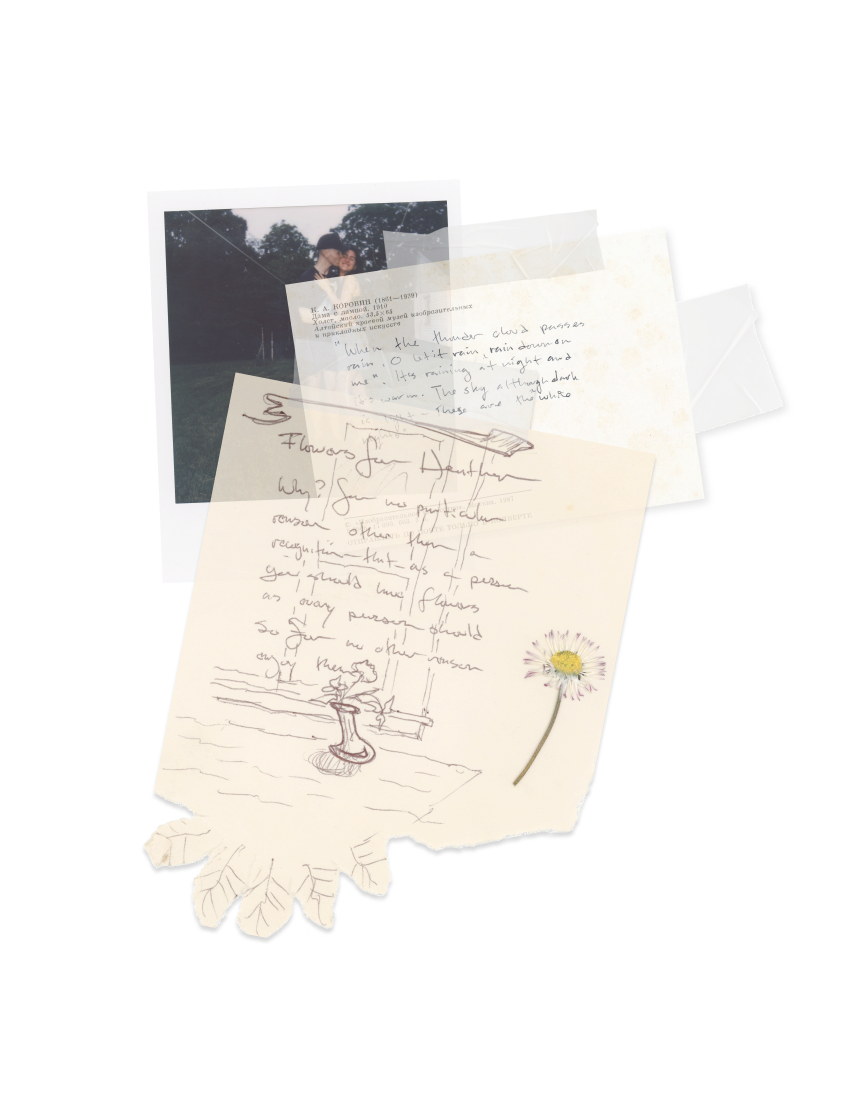 К. А. КОРОВИН (1861—1939)
Дама с лампой. 1910
Холст, масло. 53,5×64
Алтайский краевой музей изобразительных
и прикладных искусств
"When the thunder cloud passes
rain, O let it rain, rain down on
me". It's raining at night and
it's warm. The sky although dark
is These are the white
Flowers for Heather
Why? for no particular
reason other than a
recognition that as a person
you should have flowers
as every person should
So for no other reason
enjoy them